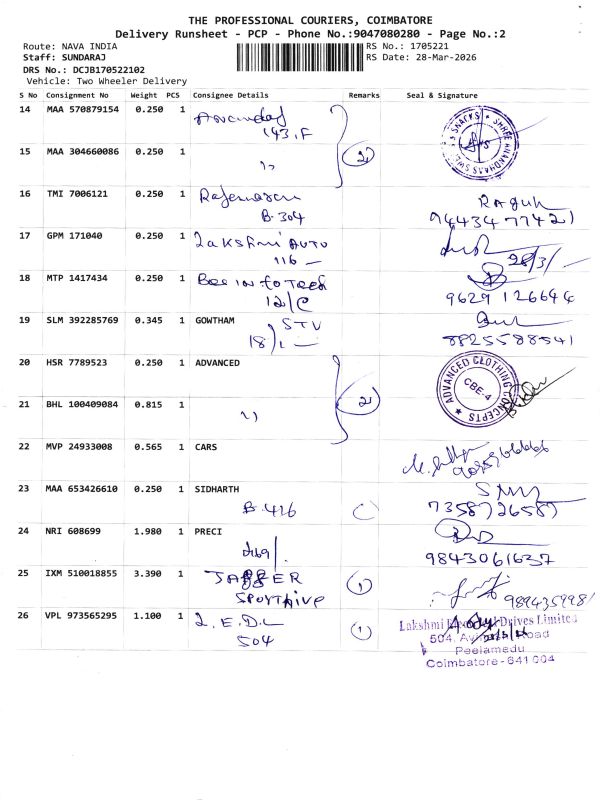 THE PROFESSIONAL COURIERS, COIMBATORE
Delivery Runsheet - PCP - Phone No.:9047080280 - Page No.:2
Route: NAVA INDIA
RS No.: 1705221
Staff: SUNDARAJ
RS Date: 28-Mar-2026
DRS No.: DCJB170522102
Vehicle: Two Wheeler Delivery
S No Consignment No Weight PCS Consignee Details Remarks Seal & Signature
14 MAA 570879154 0.250 1
143.F
15 MAA 304660086 0.250 1
2
16 TMI 7006121 0.250 1
B.304
Raguh
9443477421
17 GPM 171040 0.250 1 Lakshmi Auto
116 —
28/3/—
18 MTP 1417434 0.250 1 Bee info Tech
12/C
9629126644
19 SLM 392285769 0.345 1 GOWTHAM STV
18/1 —
8825588541
20 HSR 7789523 0.250 1 ADVANCED
ADVANCED CLOTHING CONCEPTS
CBE-4
21 BHL 100409084 0.815 1
2
22 MVP 24933008 0.565 1 CARS
23 MAA 653426610 0.250 1 SIDHARTH
B.416
7358726587
24 NRI 608699 1.980 1 PRECI
9843061637
25 IXM 510018855 3.390 1
1
9894359981
26 VPL 973565295 1.100 1 L.E.D.L
504
1
Lakshmi Drives Limited
504, Road
Peelamedu
Coimbatore-641 004